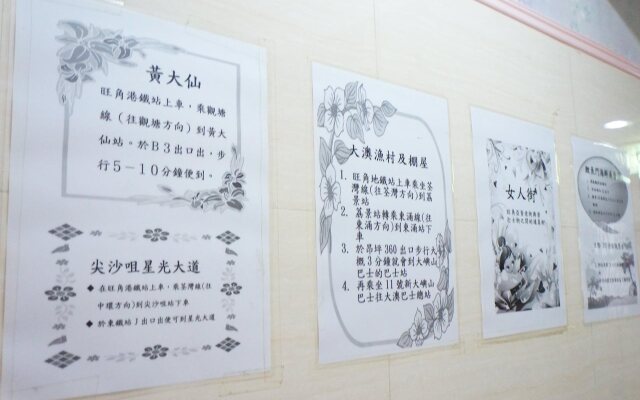 黃大仙
旺角港鐵站上車，乘觀塘
線（往觀塘方向）到黃大
仙站。於B3出口出，步
行5－10分鐘便到。
尖沙咀星光大道
◆ 在旺角港鐵站上車，乘荃灣線(往
中環方向)到尖沙咀站下車
◆ 於東鐵站J出口出便可到星光大道
大澳漁村及棚屋
1. 旺角地鐵站上車乘坐荃
灣線(往荃灣方向)到荔
景站
2. 荔景站轉乘東涌線(往
東涌方向)到東涌站下
車
3. 於昂坪360出口步行大
概3分鐘就會到大嶼山
巴士的巴士站
4. 再乘坐11號新大嶼山
巴士往大澳巴士總站
女人街